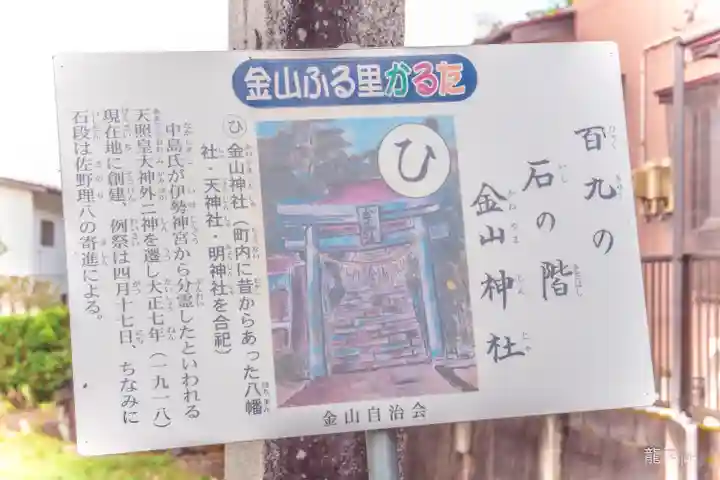 金山ふる里かるた
百九の
石の階
金山神社
ひ
㋪金山神社(町内に昔からあった八幡
社・天神社・明神社を合祀)
中島氏が伊勢神宮から分霊したといわれる
天照皇大神外二神を遷し大正七年(一九一八)
現在地に創建、例祭は四月十七日、ちなみに
石段は佐野理八の寄進による。
金山自治会